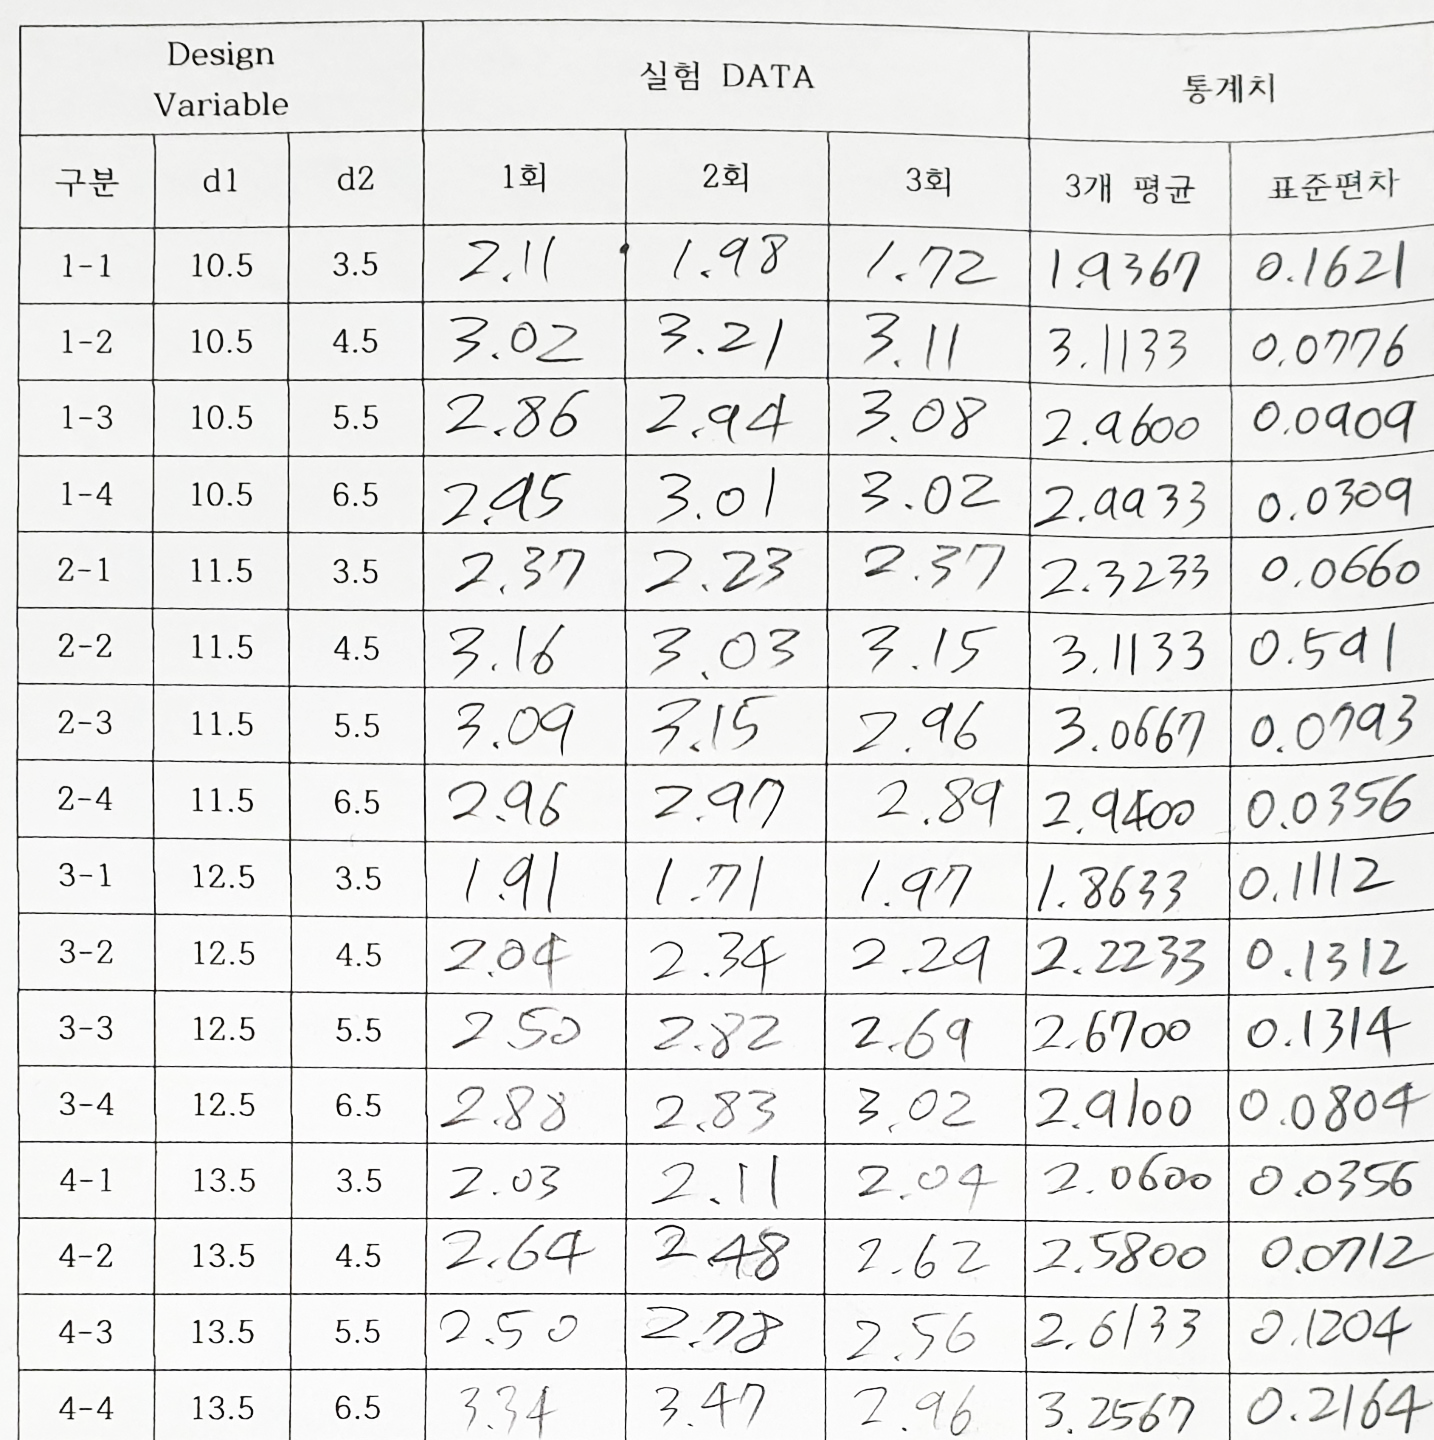 Design Variable 실험 DATA 통계치
구분 d1 d2 1회 2회 3회 3개 평균 표준편차
1-1 10.5 3.5 2.11 1.98 1.72 1.9367 0.1621
1-2 10.5 4.5 3.02 3.21 3.11 3.1133 0.0776
1-3 10.5 5.5 2.86 2.94 3.08 2.9600 0.0909
1-4 10.5 6.5 2.95 3.01 3.02 2.9933 0.0309
2-1 11.5 3.5 2.37 2.23 2.37 2.3233 0.0660
2-2 11.5 4.5 3.16 3.03 3.15 3.1133 0.591
2-3 11.5 5.5 3.09 3.15 2.96 3.0667 0.0793
2-4 11.5 6.5 2.96 2.97 2.89 2.9400 0.0356
3-1 12.5 3.5 1.91 1.71 1.97 1.8633 0.1112
3-2 12.5 4.5 2.04 2.34 2.29 2.2233 0.1312
3-3 12.5 5.5 2.50 2.82 2.69 2.6700 0.1314
3-4 12.5 6.5 2.88 2.83 3.02 2.9100 0.0804
4-1 13.5 3.5 2.03 2.11 2.04 2.0600 0.0356
4-2 13.5 4.5 2.64 2.48 2.62 2.5800 0.0712
4-3 13.5 5.5 2.50 2.78 2.56 2.6133 0.1204
4-4 13.5 6.5 3.34 3.47 2.96 3.2567 0.2164